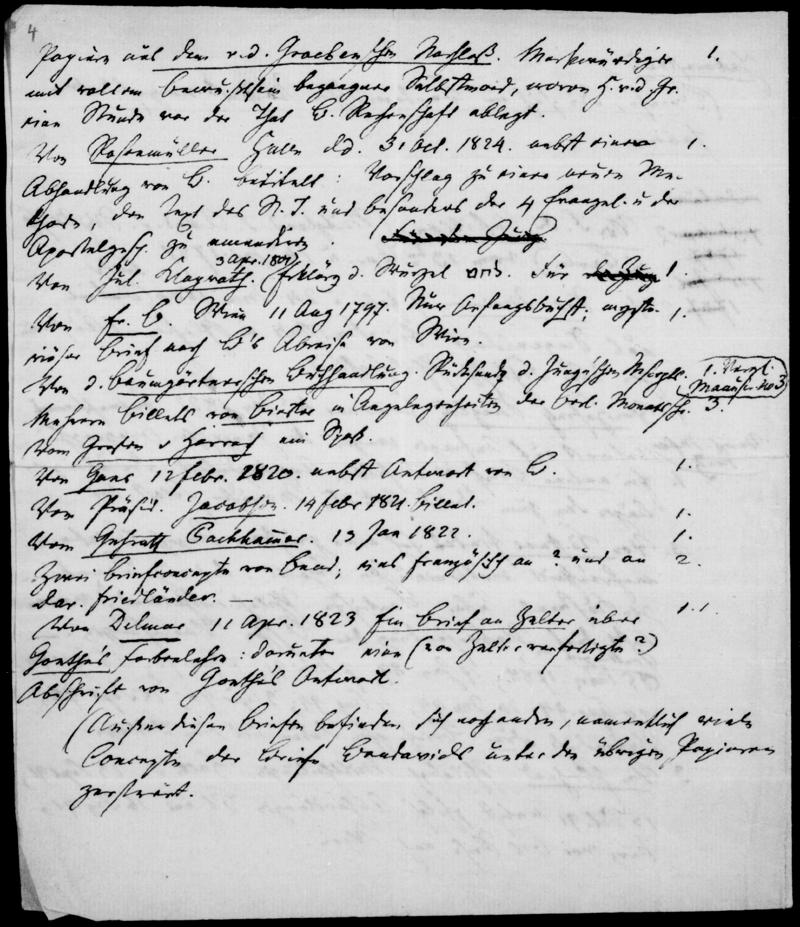 4
Papiere aus dem v. d. Groebenschen Nachlaß. Merkwürdiger 1.
mit vollem Bewußtsein begangner Selbstmord, wovon H. v. d. Gr.
eine Stunde vor der That B. Rechenschaft ablegt.
Von Rosenmüller Halle dd. 31 Oct. 1824. nebst einer 1.
Abhandlung von B. betitelt: Vorschlag zu einer neuen Me-
thode, den Text des N. T. und besonders der 4 Evangel. u der
Apostelgesch. zu emendiren.
3 Apr. 1801
Von Jul. Klaproth. Erklärg d. Wurzel für 1.
Von Fr. B. Wien 11 Aug 1797. Nur Anfangsbuchst; myste- 1.
riöser Brief nach B's Abreise von Wien.
Von d. Baumgärtnerschen Buchhandlung. Rücksendg d. Jungischen Mscrpts. 1. Vergl. Manuscr. no 3
Mehrere Billets von Biester in Angelegenheiten der Berl. Monatsschr. 3.
Vom Grafen v Harrach ein Spaß.
Von Gans 12 febr. 1820. nebst Antwort von B. 1.
Von Präsid. Jacobson. 14 febr 1821. Billet. 1.
Vom Geh. Pockhammer. 13 Jan 1822. 1.
Zwei Briefconcepte von Bend; eins französisch an ? und an 2.
Dav. Friedländer. —
Von Delmar 11 Apr. 1823 Ein Brief an Zelter über 1.1.
Goethe's Farbenlehre: darunter eine (von Zelter verfertigte?)
Abschrift von Goethe's Antwort.
(Außer diesen Briefen befinden sich noch andere, namentlich viele
Concepte der Briefe Bendavids unter den übrigen Papieren
zerstreut.